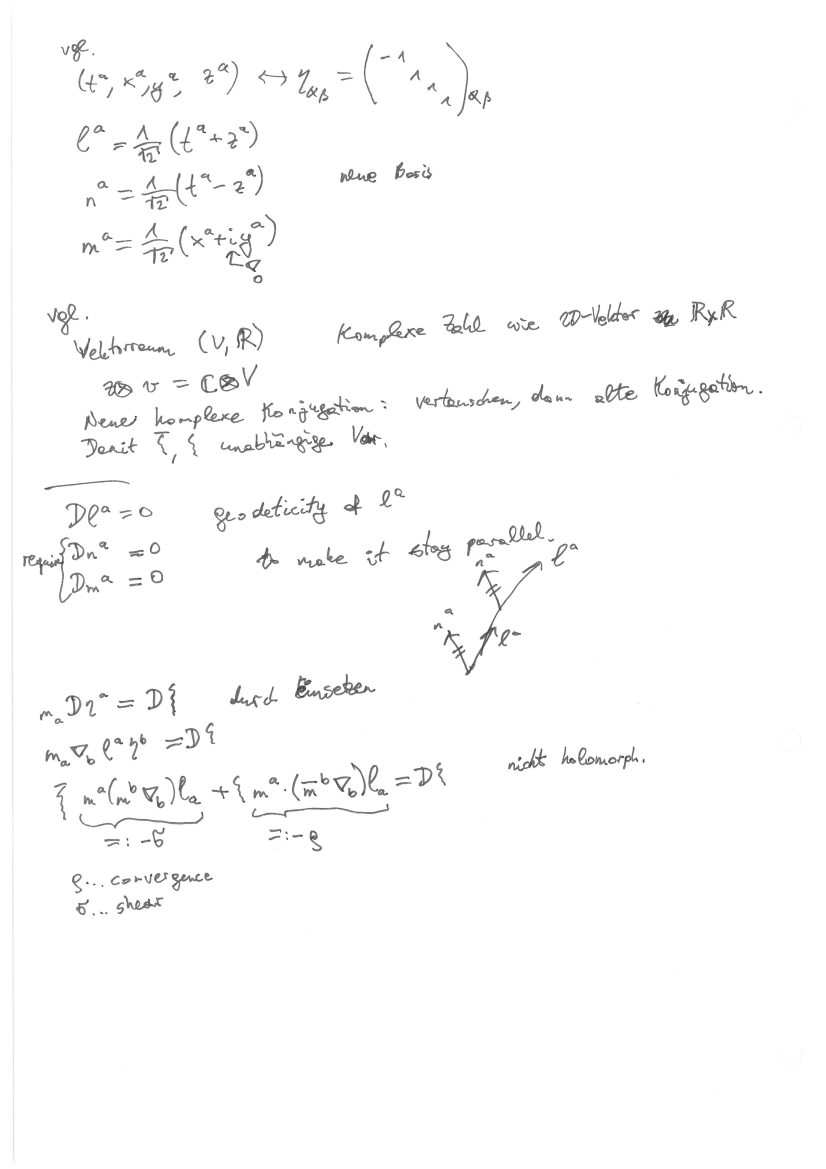 vgl.
(tᵃ, xᵃ, yᵃ, zᵃ) ↔ η_αβ = (-1 1 1 1)_αβ
lᵃ = 1/√2 (tᵃ + zᵃ)
nᵃ = 1/√2 (tᵃ - zᵃ) neue Basis
mᵃ = 1/√2 (xᵃ + iyᵃ)
vgl.
Vektorraum (V, ℝ) Komplexe Zahl wie 2D-Vektor ℝxℝ
v = ℂ⊗V
Neue komplexe Konjugation: vertauschen, dann alte Konjugation.
Damit ξ̄, ξ unabhängige Var.
Dlᵃ = 0 geodeticity of lᵃ
require { Dnᵃ = 0 to make it stay parallel.
Dmᵃ = 0
nᵃ lᵃ
nᵃ lᵃ
mₐDηᵃ = Dξ durch Einsetzen
mₐ∇_b lᵃηᵇ = Dξ
ξ̄ mᵃ(mᵇ∇_b)lₐ + ξ mᵃ·(m̄ᵇ∇_b)lₐ = Dξ nicht holomorph.
=: -σ =: -ρ
ρ... convergence
σ... shear